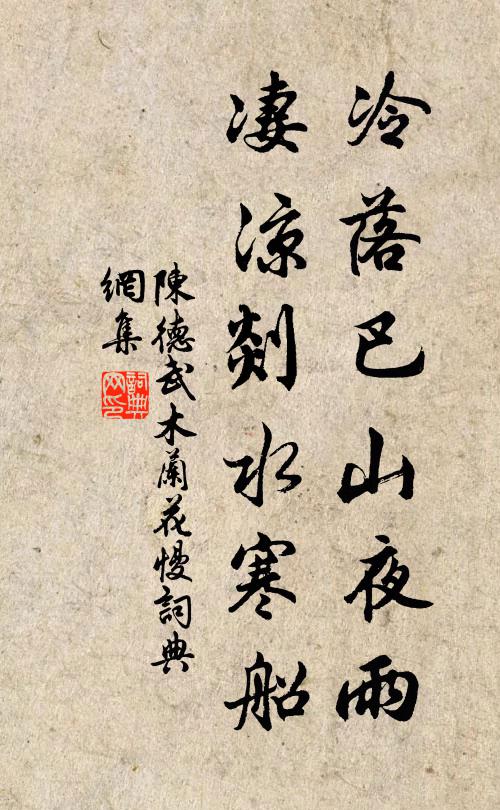 冷落巴山夜雨
凄涼剡水寒船
陳德武木蘭花慢詞典
網集
詞典
网印